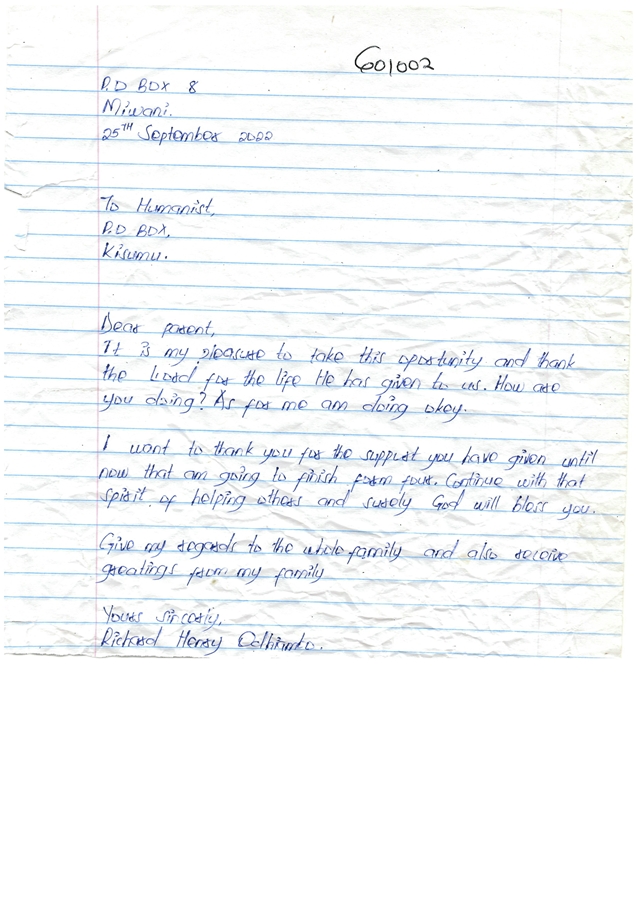 601002
P.O BOX 8
Miwani.
25TH September 2022
To Humanist,
P.O BOX,
Kisumu.
Dear parent,
It is my pleasure to take this oportunity and thank
the Lord for the life He has given to us. How are
you doing? As for me am doing okey.
I want to thank you for the support you have given until
now that am going to finish form four. Continue with that
spirit of helping others and surely God will bless you.
Give my regards to the whole family and also receive
greatings from my family
Yours
Richard Henry